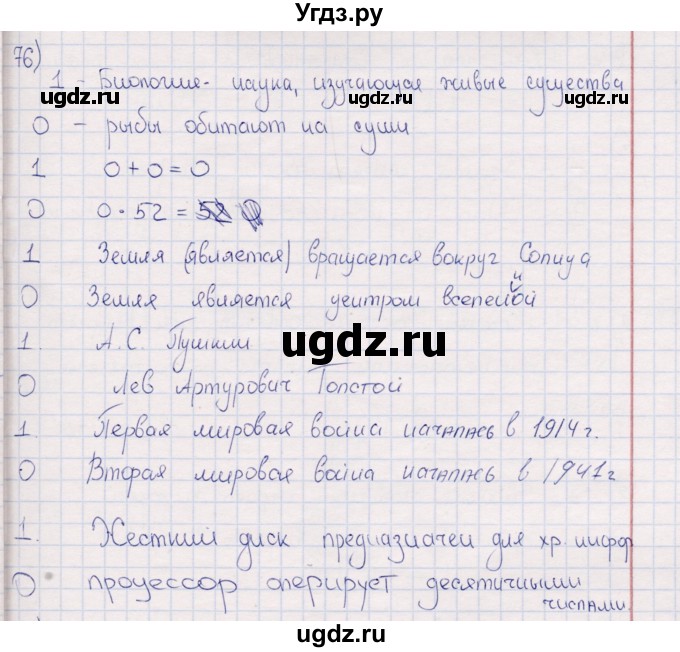 Угдз.ру
76)
1 - Биология - наука, изучающая живые существа
ugdz.ru ugdz.ru
0 - рыбы обитают на суши
1 0 + 0 = 0
0 0 · 52 =
1 Земля (является) вращается вокруг Солнца
0 Земля является центром вселенной
1. А.С. Пушкин
ugdz.ru
0 Лев Артурович Толстой
1. Первая мировая война началась в 1914 г.
0 Вторая мировая война началась в 1941 г
1. Жесткий диск предназначен для хр. инфор
0 процессор оперирует десятичными
числами.
ugdz.ru ugdz.ru
ugdz.ru